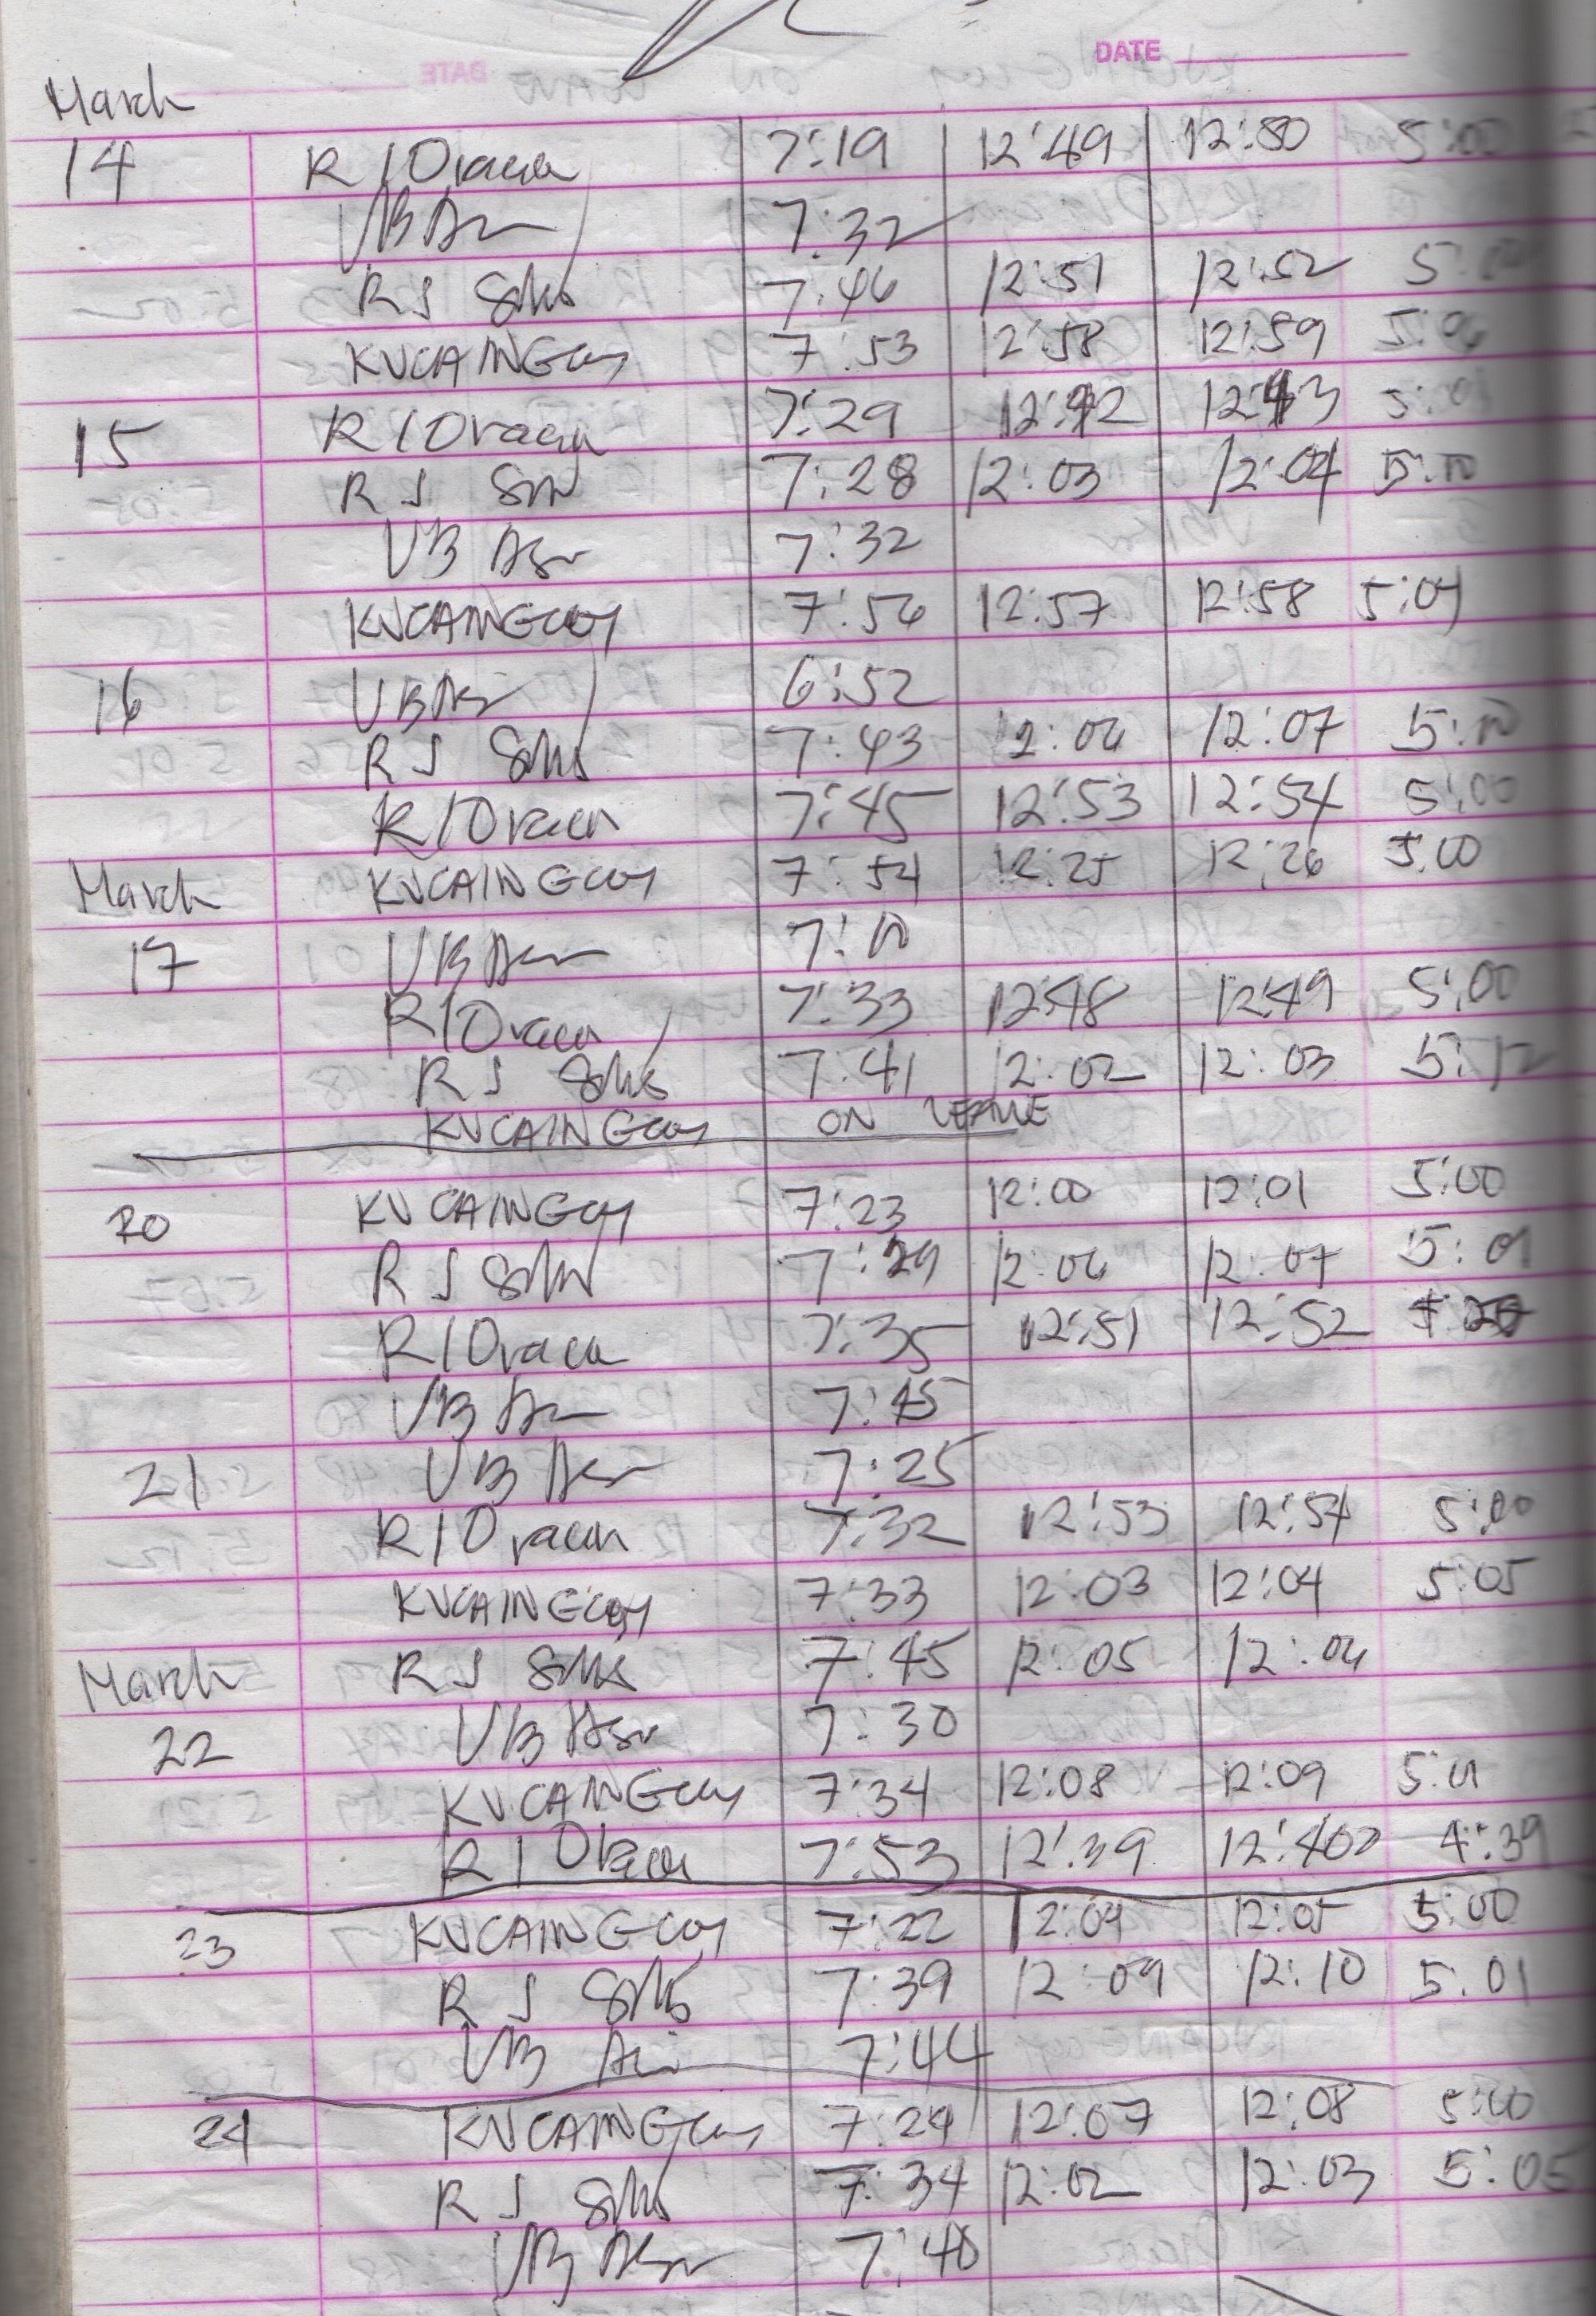 DATE
March
14 R I Oracion 7:19 12:49 12:50 5:00
VB 7:32
R J 7:46 12:51 12:52
KVCAINGCOY 7:53 12:58 12:59 5:06
15 R I Oracion 7:29 12:42 12:43 5:01
R J 7:28 12:03 12:04 5:10
VB 7:32
KVCAINGCOY 7:56 12:57 12:58 5:04
16 VB 6:52
R J 7:43 12:06 12:07 5:10
R I Oracion 7:45 12:53 12:54 5:00
March KVCAINGCOY 7:54 12:25 12:26 5:00
17 VB 7:10
R I Oracion 7:33 12:48 12:49 5:00
R J 7:41 12:02 12:03 5:12
KVCAINGCOY ON LEAVE
20 KVCAINGCOY 7:23 12:00 12:01 5:00
R J 7:29 12:06 12:07 5:01
R I Oracion 7:35 12:51 12:52
VB 7:45
21 VB 7:25
R I Oracion 7:32 12:53 12:54 5:00
KVCAINGCOY 7:33 12:03 12:04 5:05
March R J 7:45 12:05 12:06
22 VB 7:30
KVCAINGCOY 7:34 12:08 12:09 5:01
R I Oracion 7:53 12:39 12:40 4:39
23 KVCAINGCOY 7:22 12:04 12:05 5:00
R J 7:39 12:09 12:10 5:01
VB 7:44
24 KVCAINGCOY 7:24 12:07 12:08 5:00
R J 7:34 12:02 12:03 5:05
VB 7:48